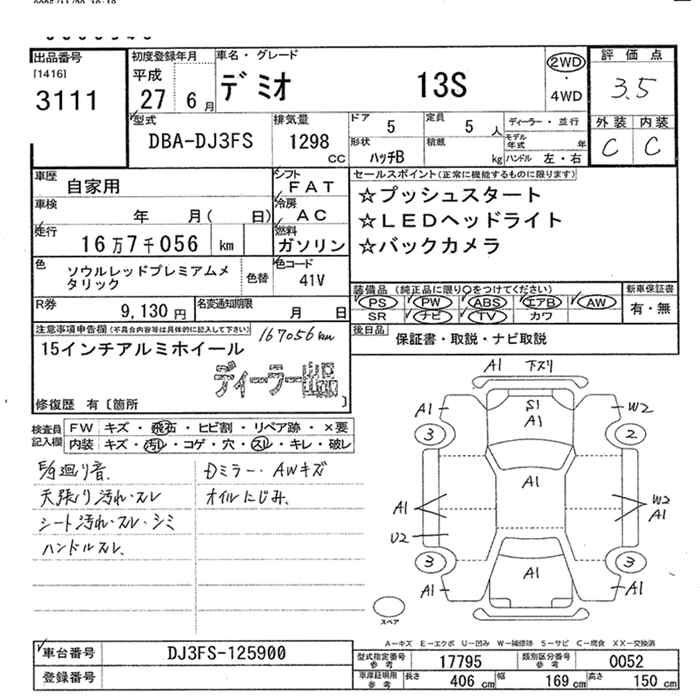 出品番号
[1416]
3111
初度登録年月
平成
27 6月
車名・グレード
デミオ 13S
2WD
・
4WD
評価点
3.5
外装 内装
C C
型式
DBA-DJ3FS
排気量
1298
CC
ドア 5
形状 ハッチB
定員 5 人
積載 kg
ディーラー・並行
モデル年式 年
ハンドル 左・右
車歴 自家用
車検 年 月( 日)
走行 16万7千056 km
シフト FAT
冷房 AC
燃料 ガソリン
セールスポイント(正常に機能するものに限ります)
☆プッシュスタート
☆LEDヘッドライト
☆バックカメラ
色 ソウルレッドプレミアムメタリック
色替
色コード 41V
R券 9,130 円
名変通知期限 月 日
装備品 (純正品に限り○をつけてください)
PS PW ABS エアB AW
SR ナビ TV カワ
新車保証書
有・無
後日品 保証書・取説・ナビ取説
注意事項申告欄(不具合内容等は具体的に記入して下さい)
167056km
15インチアルミホイール
ディーラー出品
修復歴 有〔箇所 〕
検査員記入欄
FW キズ・飛石・ヒビ割・リペア跡・×要
内装 キズ・汚れ・コゲ・穴・スレ・キレ・破レ
天張り汚れ・スレ
シート汚れ・スレ・シミ
ハンドルスレ、
Dミラー・AWキズ
オイルにじみ、
A1 下スリ
A1 S1 A1 W2
3 2
A1
A1 W2 A1
U2
3 3
A1 A1 A1
スペア
A−キズ E−エクボ U−凹み W−補修跡 S−サビ C−腐食 XX−交換済
車台番号 DJ3FS-125900
登録番号
型式指定番号 参考 17795
類別区分番号 参考 0052
車庫証明用 参考 長さ 406 cm 幅 169 cm 高さ 150 cm